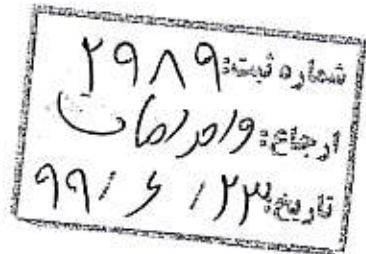 شماره ثبت: ۲۹۸۹
ارجاع: واحد
تاریخ: ۹۹/۶/۲۳